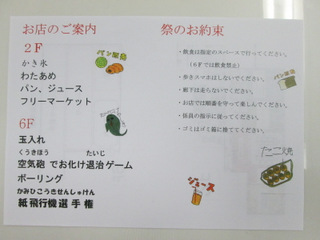 お店のご案内
2F
かき氷
わたあめ
パン、ジュース
フリーマーケット
6F
玉入れ
くうきほう たいじ
空気砲 でお化け退治ゲーム
ボーリング
かみひこうきせんしゅけん
紙飛行機選手権
パン販売
祭のお約束
・飲食は指定のスペースで行ってください。
(6Fでは飲食禁止)
・歩きスマホはしないでください。
・廊下は走らないでください。
・お店では順番を守って楽しんでください。
・係員の指示に従ってください。
・ゴミはゴミ箱に捨ててください。
たこ焼
ジュース